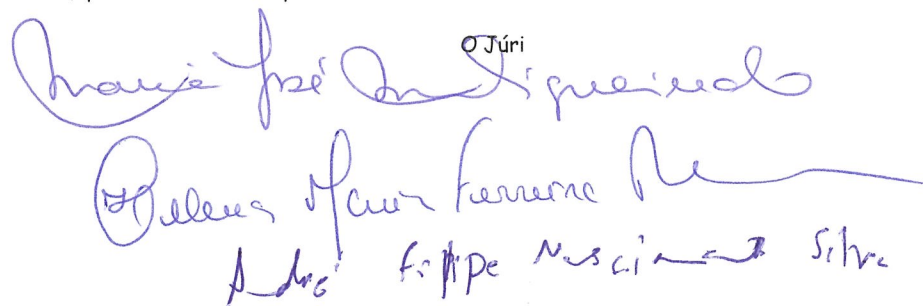 O Júri
Maria José Figueiredo
Helena Maria Ferreira
André Filipe Nascimento Silva